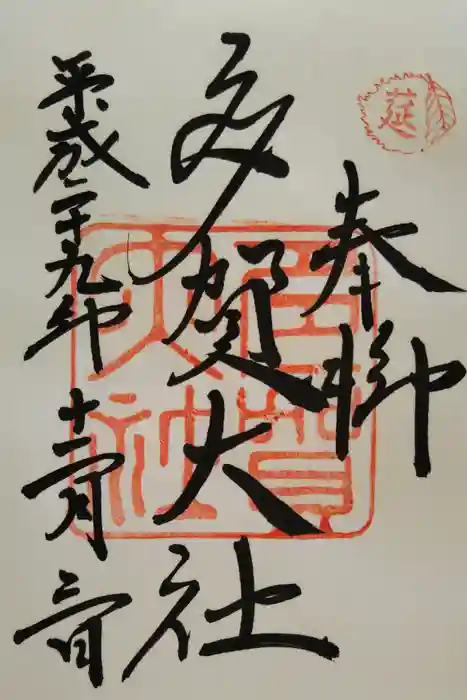 莚
奉拝
多賀大社
平成二十九年十二月三日
多賀大社